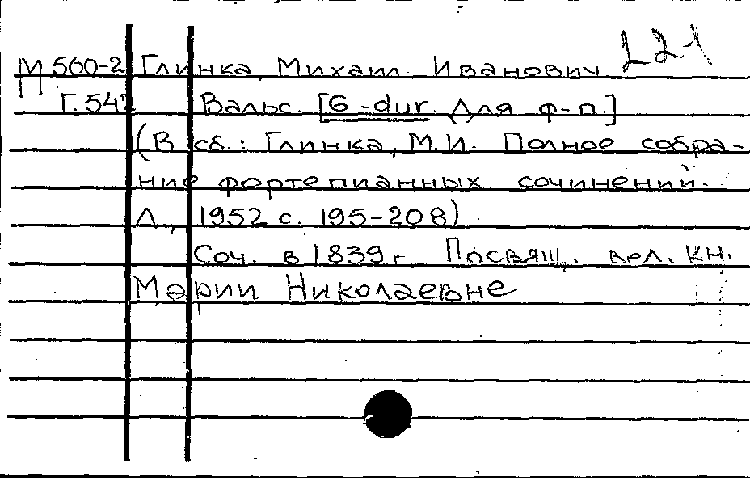 121
М560-2 Глинка, Михаил Иванович
П
Г.542 Вальс. [G-dur. Для ф-п.]
(В сб.: Глинка, М.И. Полное собра-
ние фортепианных сочинений.
Л., 1952 с. 195-208)
Соч. в 1839 г. Посвящ. вел. кн.
Марии Николаевне